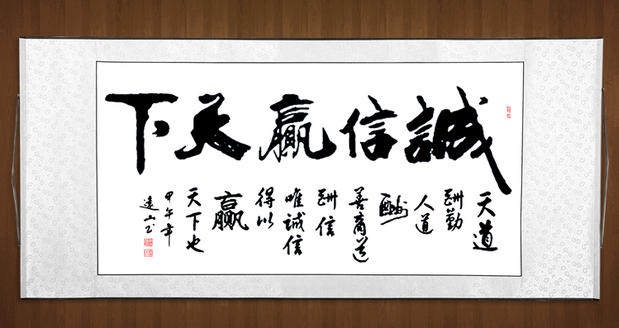 誠信赢天下
天道
酬勤
人道
酬
善商道
酬信
唯誠信
得以
赢
天下也
甲午年
遠山书